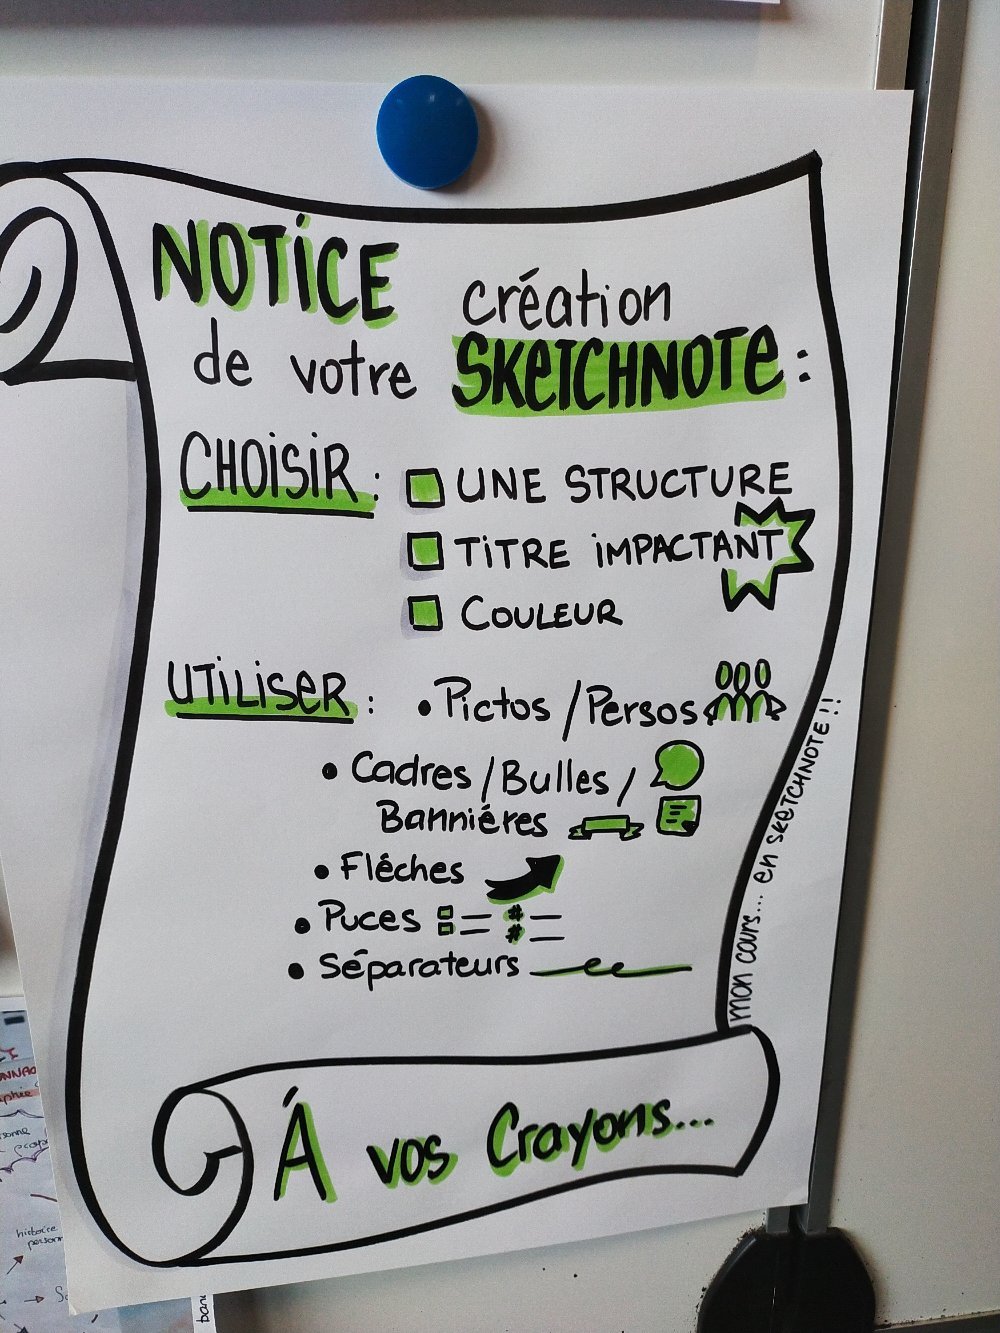 NOTiCE
création
de votre SKeTCHNOTe :
CHOiSiR : UNE STRUCTURE
TiTRE iMPACTANT
COULEUR
UTiLiSeR : • Pictos / Persos
• Cadres / Bulles /
Banniéres
• Fléches
• Puces
# 
#
• Séparateurs
mon cours... en SKeTCHNOTE !!
Á vos Crayons...
histoire